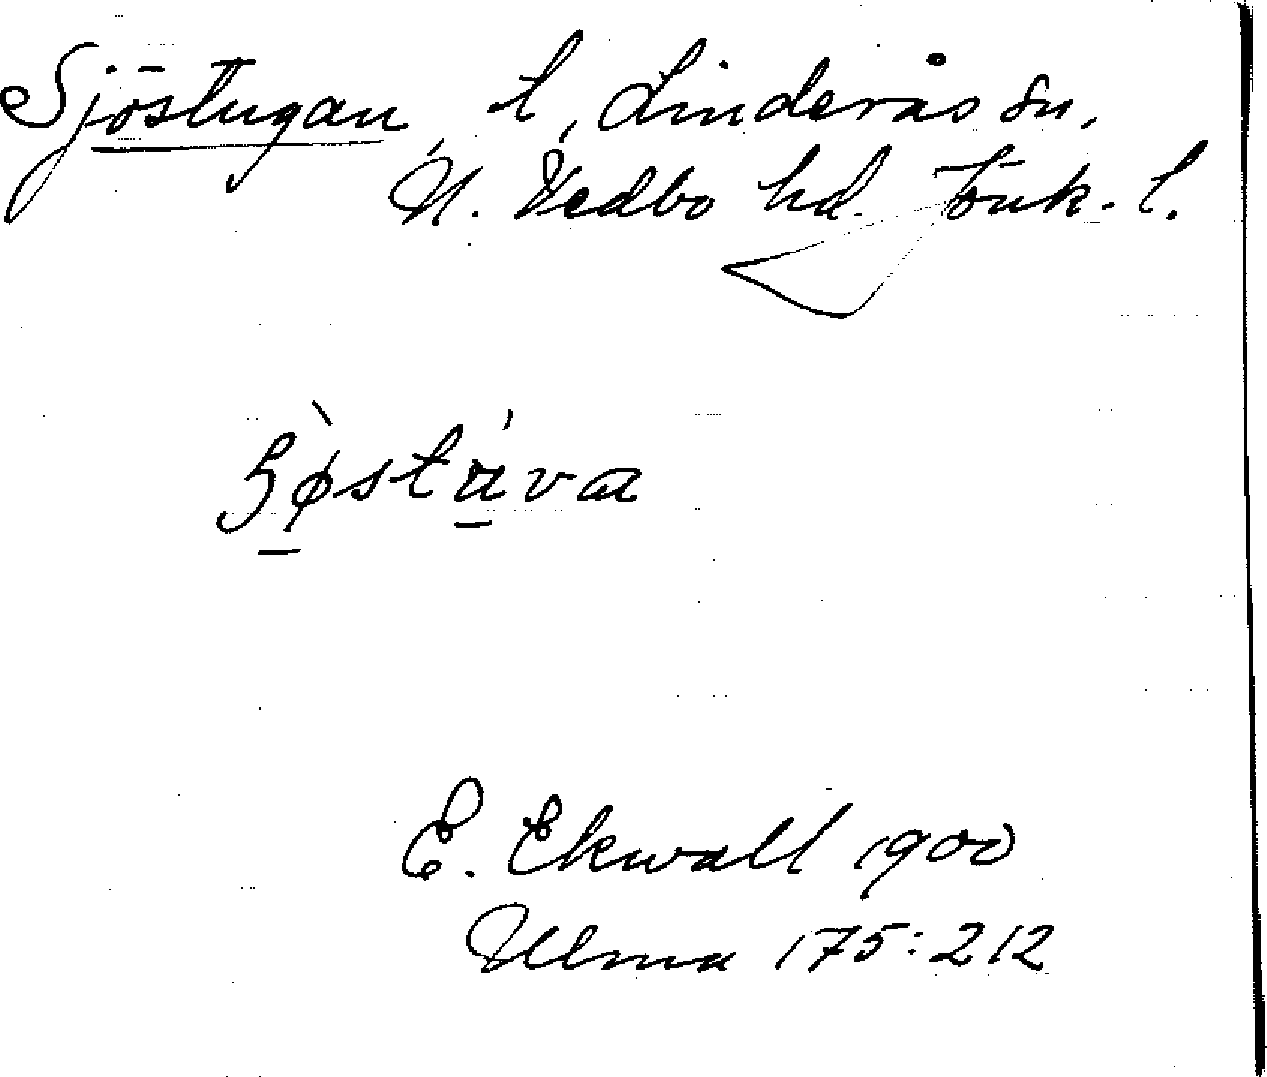 Sjöstugan, t, Linderås sn,
N. Vedbo hd. Jönk. l.
E. Ekwall 1900
Ulma 175:212